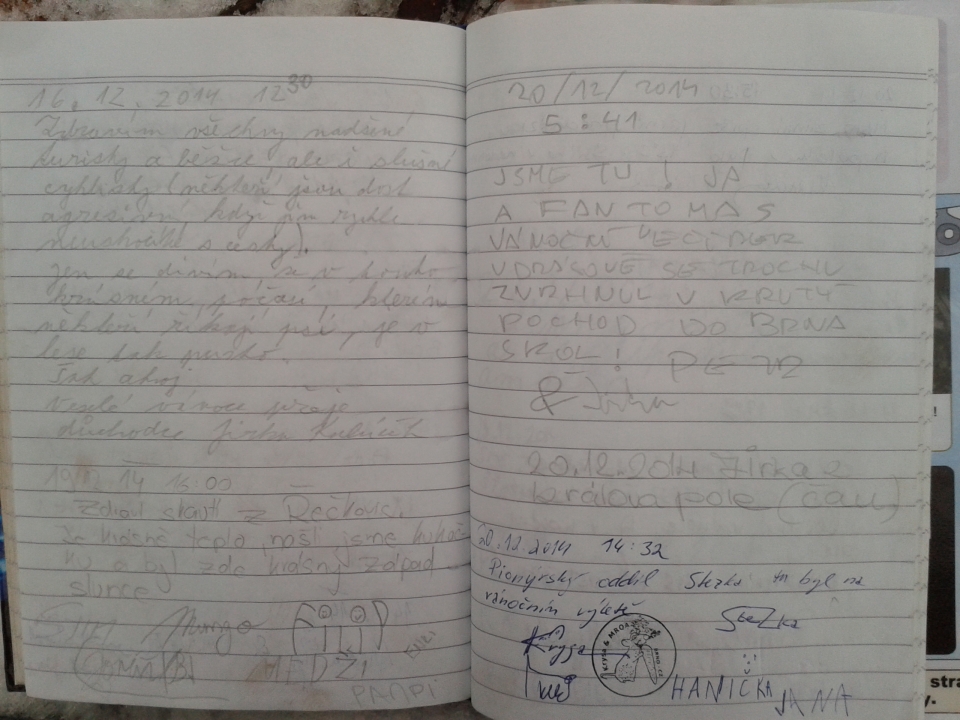 16. 12. 2014 12³⁰
Zdravím všechny nadšené
turisty a běžce, ale i slušné
cyklisty (někteří jsou dost
agresivní, když jim rychle
neuskočíte s cesty).
Jen se divím, že v tomto
krásném počasí, kterému
někteří říkají psí, je v
lese tak pusto.
Tak ahoj
Veselé vánoce přeje
důchodce Jirka
19 14 15:00
Zdraví skauti z Řečkovic.
Je krásně teplo, našli jsme
a byl zde krásný západ
slunce
Mungo
MEDZI
PAMPI
20/12/2014
5:41
JSME TU! JÁ
A FANTOMAS
VÁNOČNÍ VEČÍREK
V DRÁSOVĚ SE TROCHU
ZVRHNUL V KRUTÝ
POCHOD DO BRNA
SKOL! PETR
&
20.12.2014 Jirka z
Králova pole (čau)
20.12.2014 14:32
Pionýrský oddíl Stezka tu byl na
vánočním výletě
Stezka
Kryga
HANIČKA
JANA